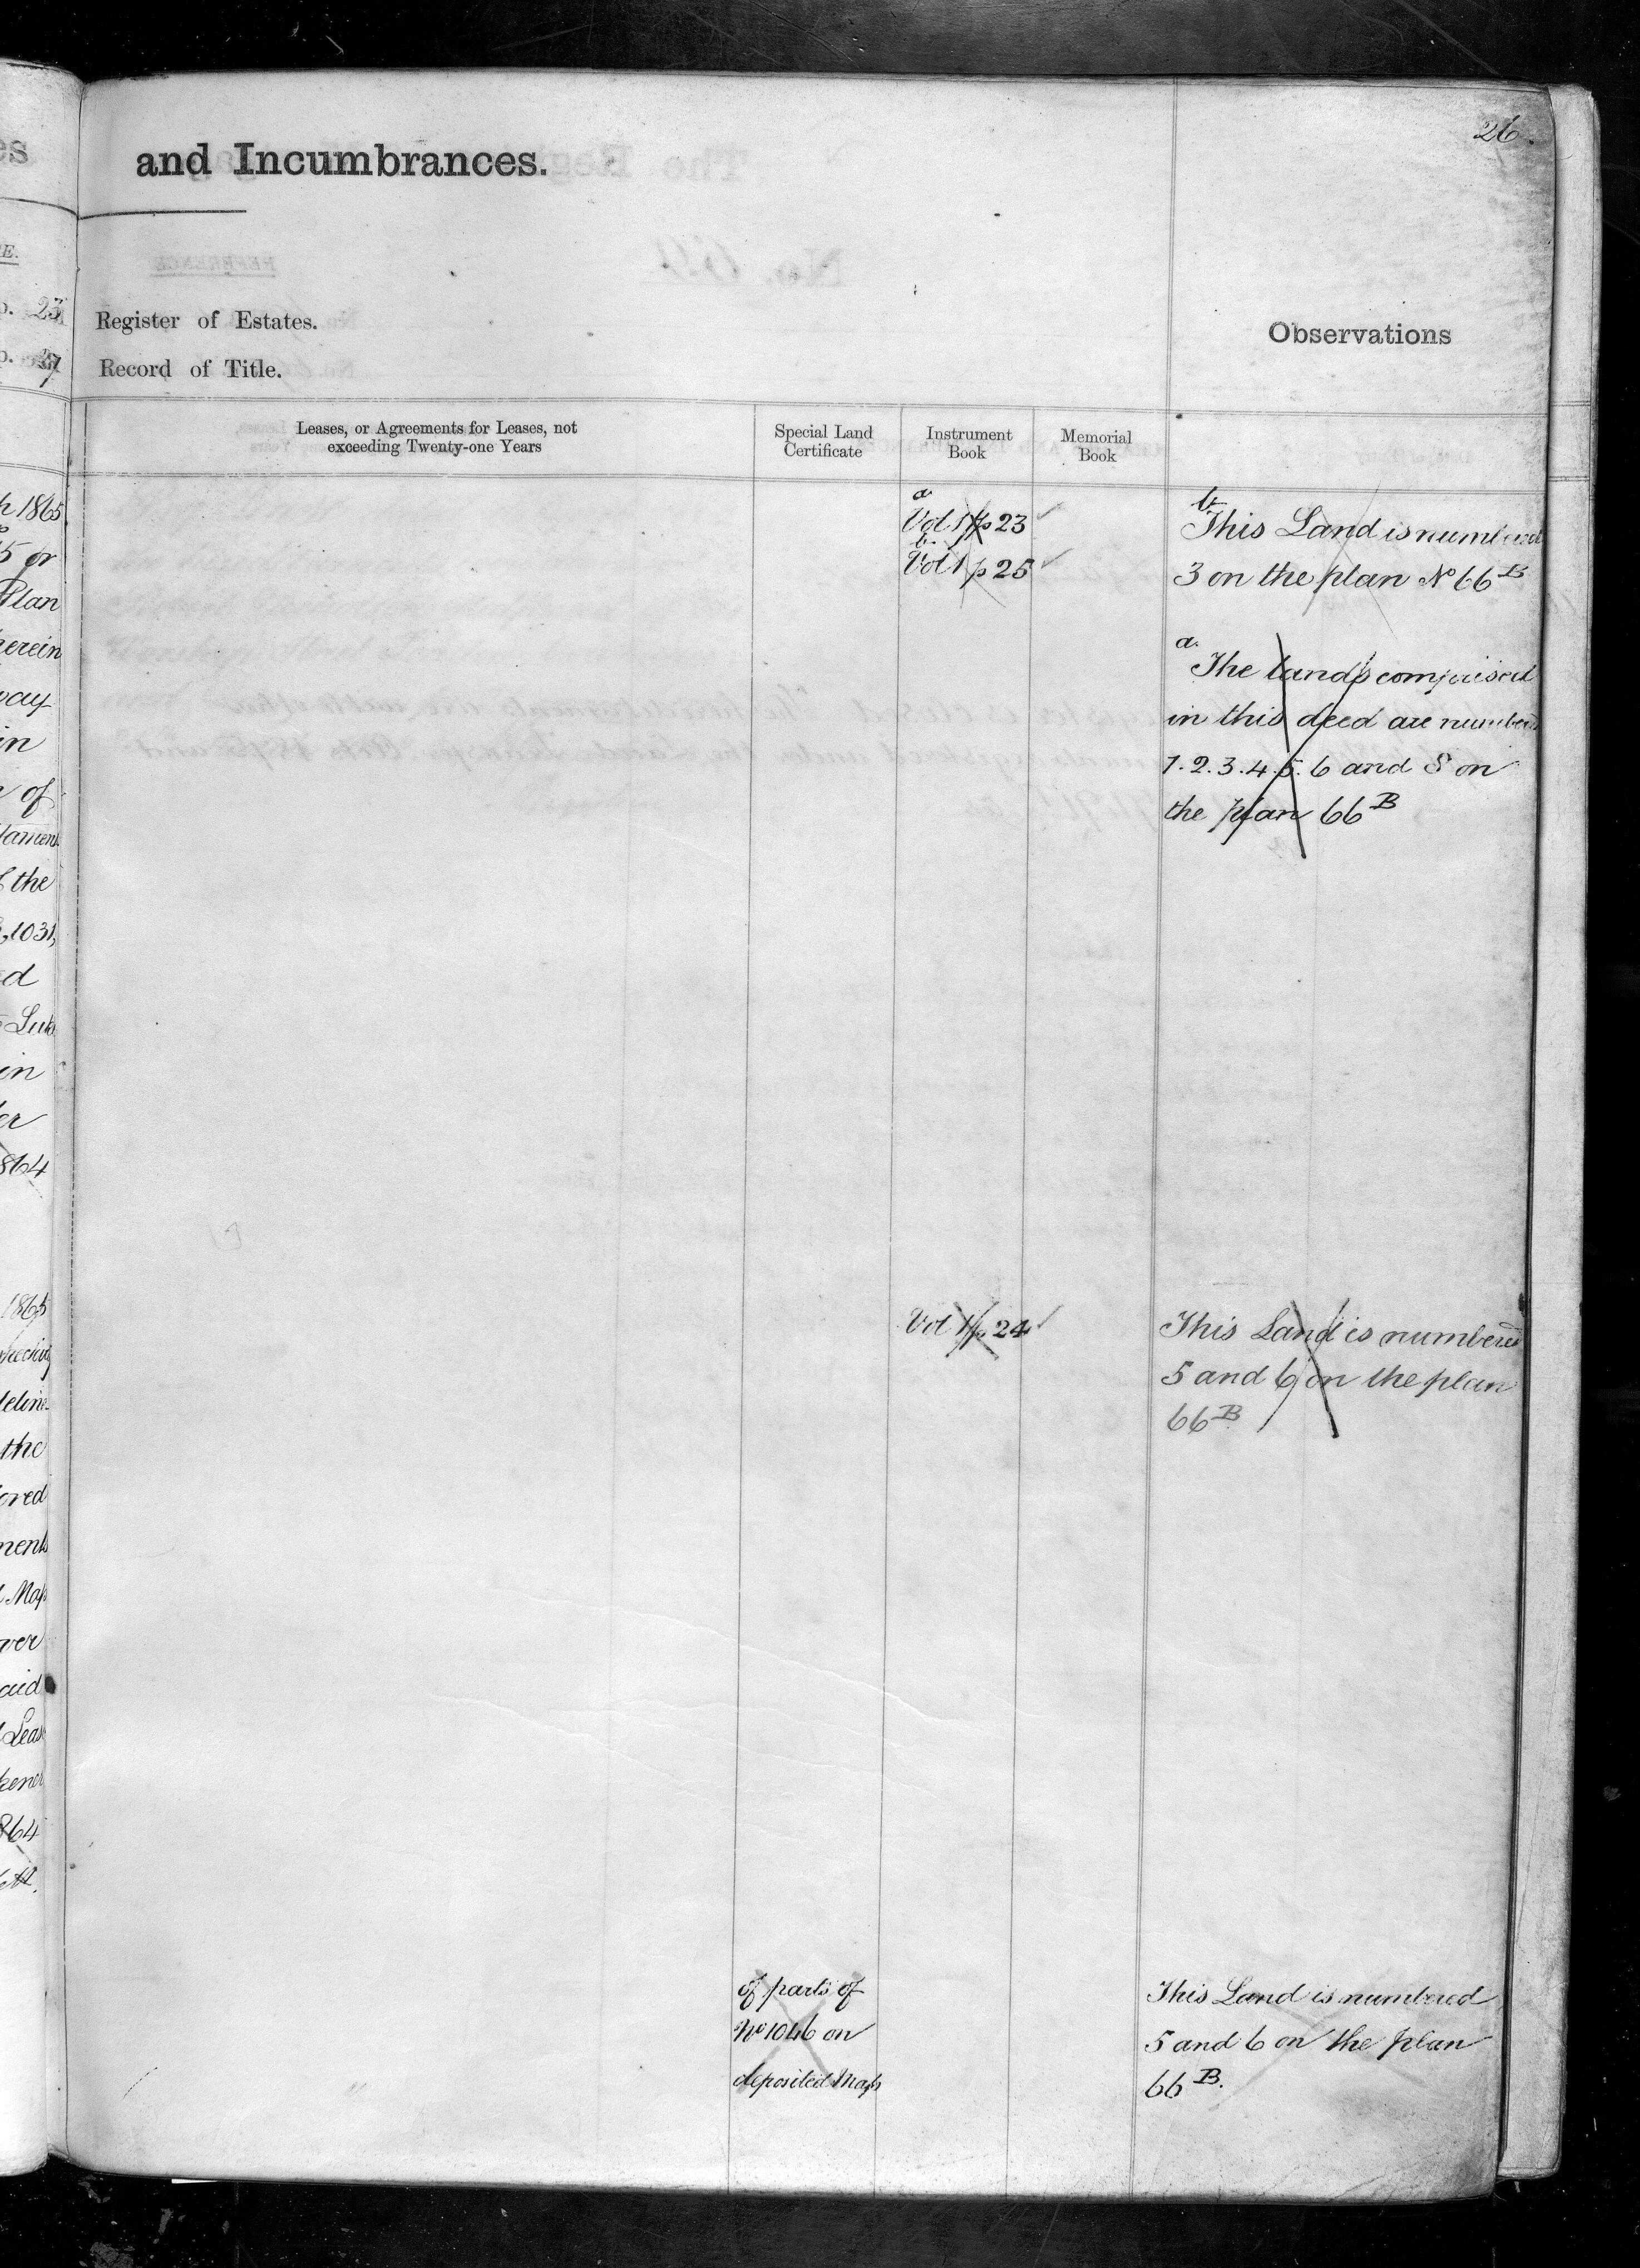 26.
and Incumbrances.
Register of Estates.
Record of Title.
Observations
Leases, or Agreements for Leases, not
exceeding Twenty-one Years
Special Land
Certificate
Instrument
Book
Memorial
Book
a
Vol 1 p 23
b.
Vol 1 p 25
b
This Land is numbered
3 on the plan No 66 B
a.
The lands comprised
in this deed are numbered
1.2.3.4.5.6 and 8 on
the plan 66 B
Vol 1 p 24
This Land is numbered
5 and 6 on the plan
66 B
of parts of
No 1046 on
deposited Map
This Land is numbered
5 and 6 on the plan
66 B.
23
37
1865
5 or
Plan
herein
way
in
of
the
1031,
d
in
864
1865
the
Map
864